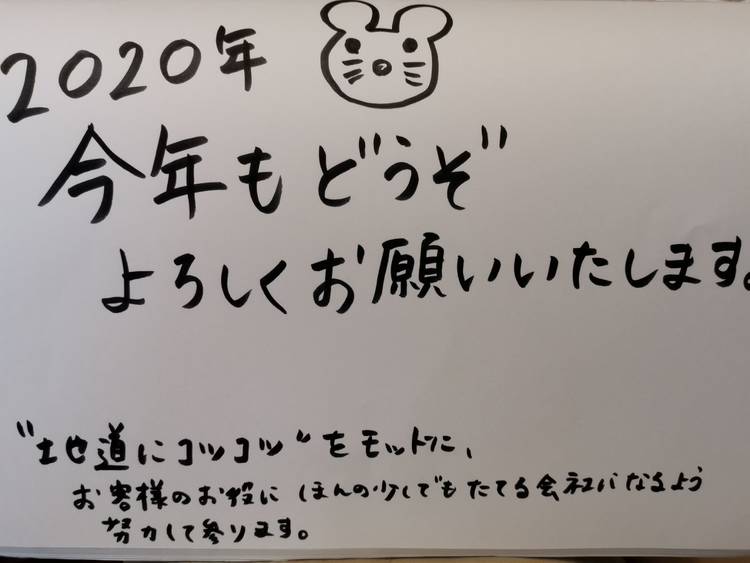 2020年
今年もどうぞ
よろしくお願いいたします。
"地道にコツコツ"をモットーに、
お客様のお役に ほんの少しでもたてる会社になるよう
努力して参ります。